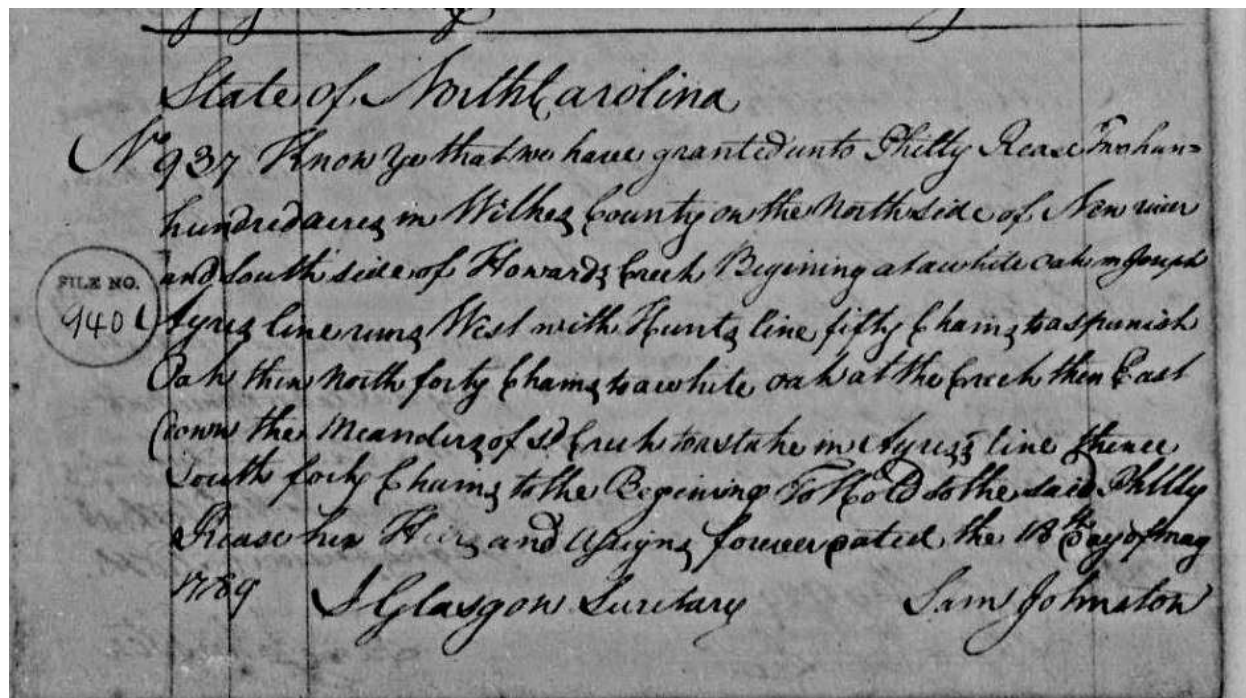 State of North Carolina
No 937 Know Ye that we have granted unto Philly Rease Two hun=
hundred acres in Wilkes County on the North side of New river
and South side of Howards Creek Begining at a white oak in Joseph
FILE NO.
940
Ayres line runs West with Hunts line fifty Chains to a spanish
Oak then North forty Chains to a white oak at the Creek then East
down the Meanders of sd Creek to a stake in Ayres's line thence
South forty Chains to the Begining To Hold to the said Philly
Rease her Heirs and assigns forever Dated the 18th Day of May
1789 J Glasgow Secretary Sam Johnston